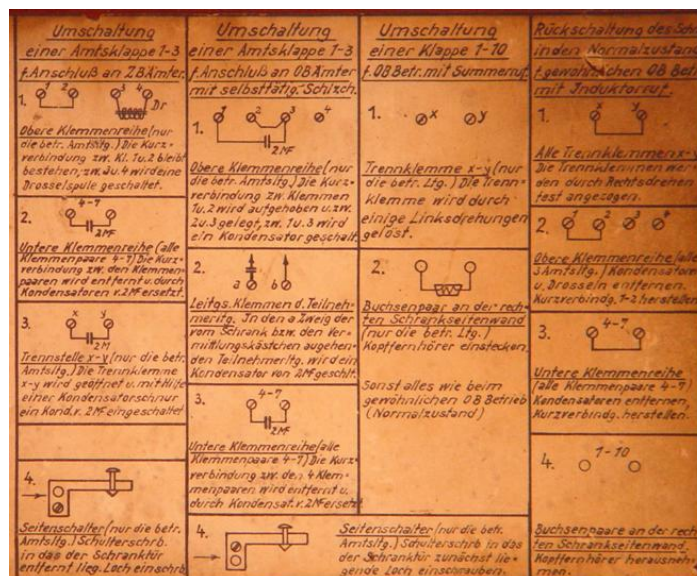 Umschaltung
einer Amtsklappe 1-3
f. Anschluß an ZB Ämter.
1.
1 2 3 4
Dr
Obere Klemmenreihe (nur
die betr. Amtsltg.) Die Kurz-
verbindung zw. Kl. 1u.2 bleibt
bestehen, zw. 3u.4 wird eine
Drosselspule geschaltet.
2.
4-7
2MF
Untere Klemmenreihe (alle
Klemmenpaare 4-7) Die Kurz-
verbindung zw. den Klemmen-
paaren wird entfernt u. durch
Kondensatoren v. 2MF ersetzt.
3.
x y
2M
Trennstelle x-y (nur die betr.
Amtsltg.) Die Trennklemme
x-y wird geöffnet u. mit Hilfe
einer Kondensatorschnur
ein Kond. v. 2MF eingeschaltet
4.
Seitenschalter (nur die betr.
Amtsltg.) Schulterschrb.
in das der Schranktür
entfernt lieg. Loch einschrb.
Umschaltung
einer Amtsklappe 1-3
f. Anschluß an OB Ämter
mit selbsttätig. Schlzch.
1.
1 2 3 4
2MF
Obere Klemmenreihe (nur
die betr. Amtsltg.) Die Kurz-
verbindung zw. Klemmen
1u.2 wird aufgehoben u. zw.
2u.3 gelegt, zw. 1u.3 wird
ein Kondensator geschalt.
2.
a b
Leitgs. Klemmen d. Teilneh-
merltg. In den a Zweig der
vom Schrank bzw. den Ver-
mittlungskästchen ausgehen-
den Teilnehmerltg. wird ein
Kondensator von 2MF geschlt.
3.
4-7
2MF
Untere Klemmenreihe (alle
Klemmenpaare 4-7) Die Kurz-
verbindung zw. den 4 Klem-
menpaaren wird entfernt u.
durch Kondensat. v. 2MF ersetzt
4.
Seitenschalter (nur die betr.
Amtsltg.) Schulterschrb in das
der Schranktür zunächst lie-
gende Loch einschrauben.
Umschaltung
einer Klappe 1-10
f. OB Betr. mit Summerruf.
1.
x y
Trennklemme x-y (nur
die betr. Ltg.) Die Trenn-
klemme wird durch
einige Linksdrehungen
gelöst.
2.
Buchsenpaar an der rech-
ten Schrankseitenwand
(nur die betr. Ltg.)
Kopffernhörer einstecken.
Sonst alles wie beim
gewöhnlichen OB Betrieb
(Normalzustand)
Rückschaltung des Schr
in den Normalzustand
f. gewöhnlichen OB Betr
mit Induktorruf.
1.
x y
Alle Trennklemmen x-y
Die Trennklemmen wer-
den durch Rechtsdrehen
fest angezogen.
2.
1 2 3 4
Obere Klemmenreihe (alle
3 Amtsltg.) Kondensatoren
u. Drosseln entfernen.
Kurzverbindg. 1-2 herstellen
3.
4-7
Untere Klemmenreihe
(alle Klemmenpaare 4-7
Kondensatoren entfernen,
Kurzverbindg. herstellen.
4.
1-10
Buchsenpaare an der rech-
ten Schrankseitenwand.
Kopffernhörer herausneh-
men.